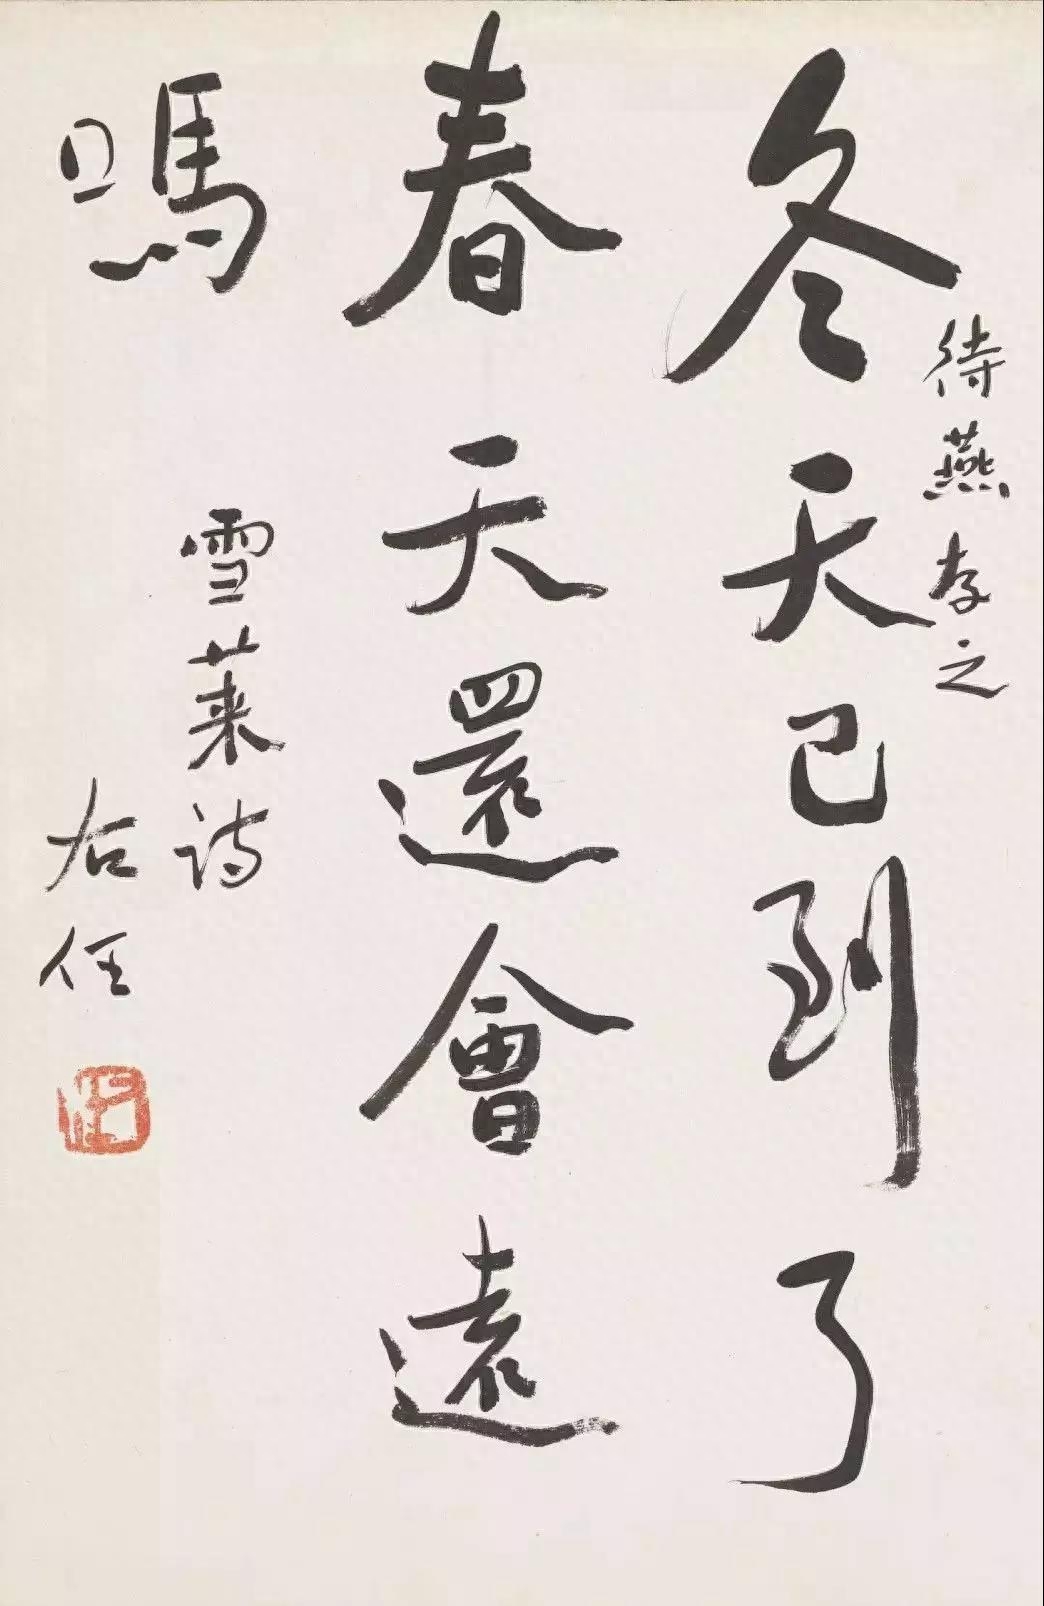 冬天已到了
待燕存之
春天還會遠
嗎
雪萊詩
右任